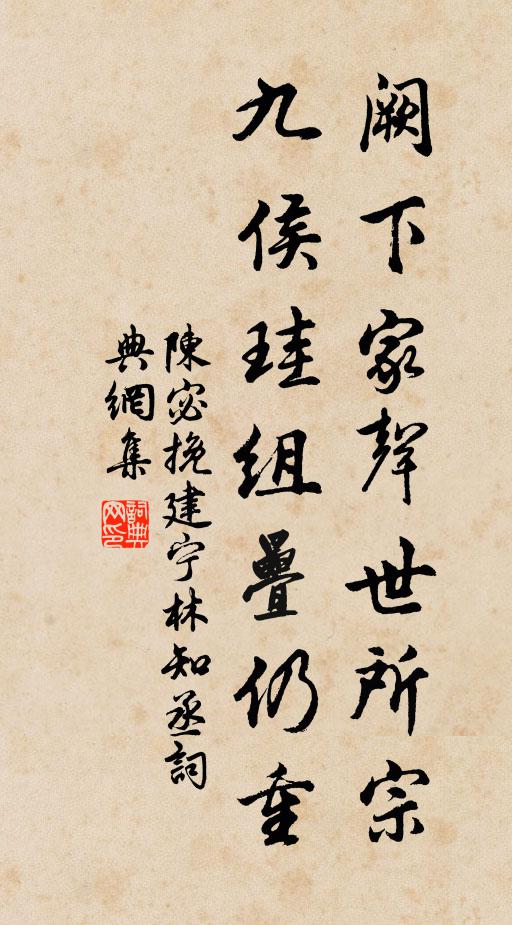 闕下家聲世所宗
九侯珪組疊仍重
陳宓挽建宁林知丞詞
典網集
詞典網印